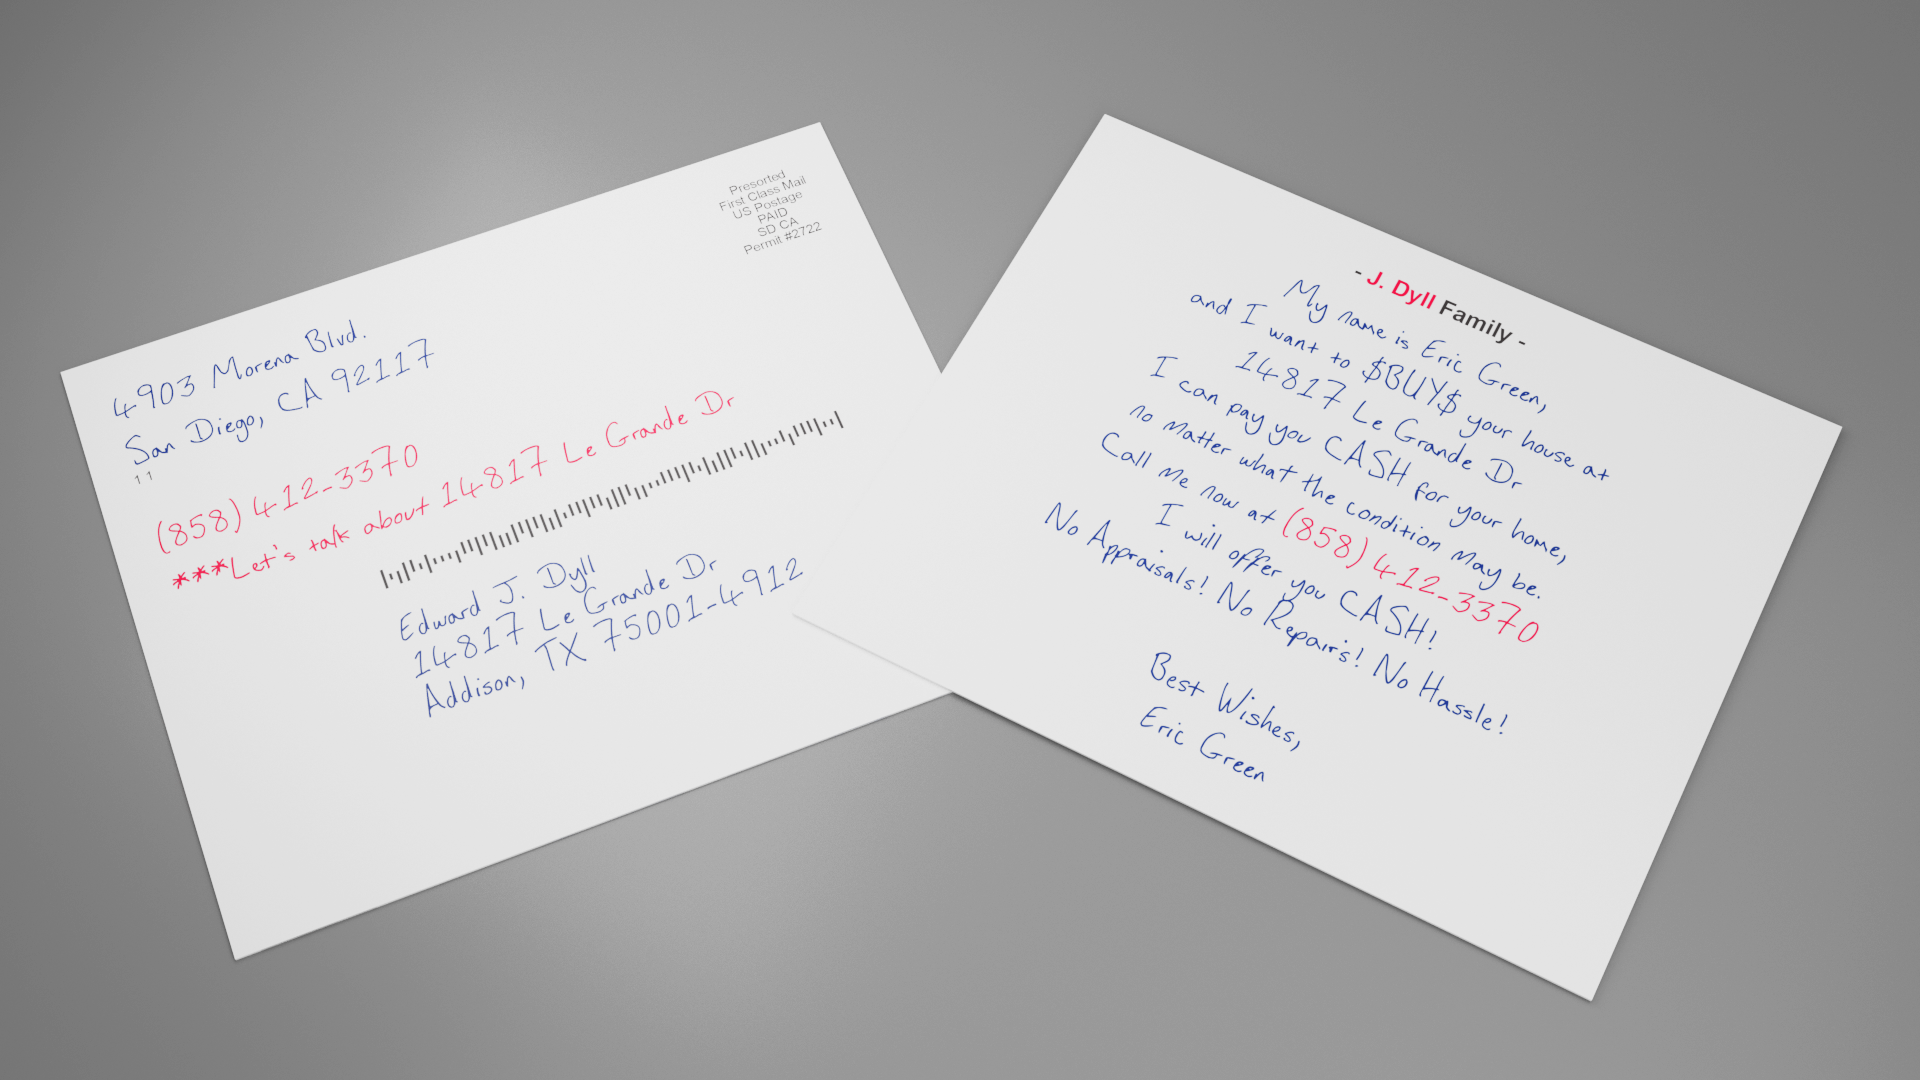 Presorted
First Class Mail
US Postage
PAID
SD CA
Permit #2722
4903 Morena Blvd.
San Diego, CA 92117
11
(858) 412-3370
***Let's talk about 14817 Le Grande Dr
Edward J. Dyll
14817 Le Grande Dr
Addison, TX 75001-4912
- J. Dyll Family -
My name is Eric Green,
and I want to $BUY$ your house at
14817 Le Grande Dr
I can pay you CASH for your home,
no matter what the condition may be.
Call me now at (858) 412-3370
I will offer you CASH!
No Appraisals! No Repairs! No Hassle!
Best Wishes,
Eric Green